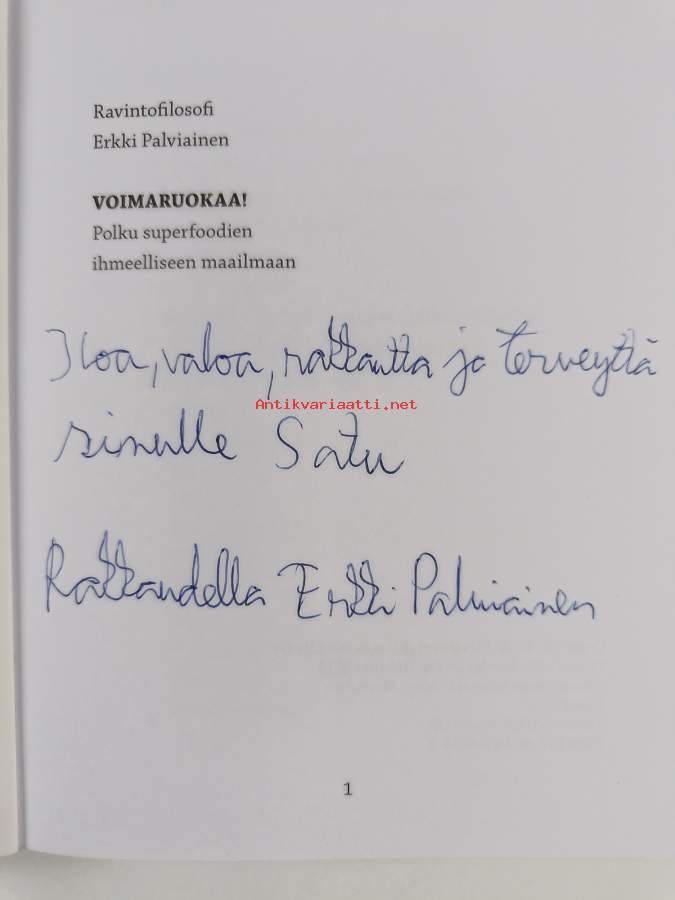 Ravintofilosofi
Erkki Palviainen
VOIMARUOKAA!
Polku superfoodien
ihmeelliseen maailmaan
Iloa, valoa, rakkautta ja terveyttä
Antikvariaatti.net
sinulle Satu
Rakkaudella Erkki Palviainen
1